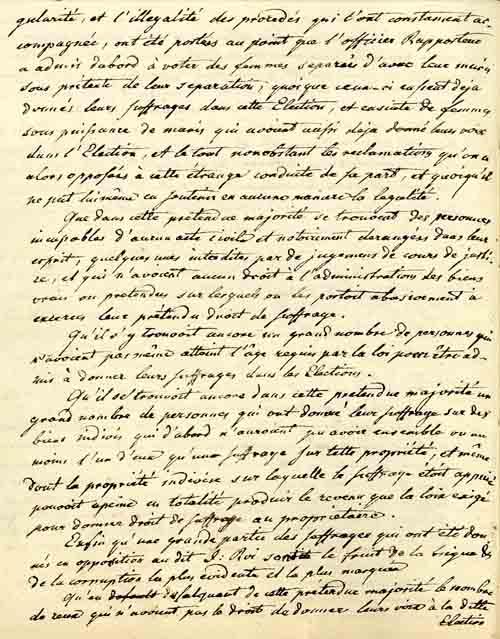 gularité, et l'illégalité des procédés qui l'ont constament ac-
compagnée, ont été portées au point que l'officier Rapporteur
a admis d'abord à voter des femmes separées d'avec leur maris
sous pretexte de leur separation, quoique ceux-ci eussent deja
donnés leurs suffrages dans cette Election, et ensuite de femmes
sous puissance de maris qui avoient aussi deja donné leurs voix
dans l'Election, et le tout nonobstant les reclamations qu'on a
alors opposées à cette étrange conduite de sa part, et quoiqu'il
ne put lui même en soutenir en aucune maniere la legalité.
Que dans cette prétendue majorité se trouvent des personnes
incapables d'aucun acte civile et notoirement derangées dans leur
esprit, quelques unes interdites par de jugemens de cours de justi-
ce, et qui n'avoient aucun droit à l'administrations des biens
vrais ou pretendus sur lesquels on les portoit abusivement à
exercer leur prétendu droit de suffrage.
Qu'il s'y trouvoit encore un grand nombre de personnes qui
n'avoient pas même atteint l'âge requis par la loi pour être ad-
mis à donner leurs suffrages dans les Elections.
Qu'il se trouvoit encore dans cette pretendue majorité un
grand nombre de personnes qui ont donné leur suffrage sur des
biens indivis qui d'abord n'auroient pu avoir ensemble ou au
moins l'un d'eux qu'un suffrage sur telle propriété, et même
dont la propriété indivise sur laquelle le suffrage étoit appuié
pouvoit apeine en totalité produire le revenu que la loix exige
pour donner droit de suffrage au propriétaire.
Enfin qu'une grande partie des suffrages qui ont été don-
nés en opposition au dit J. Roi sont le fruit de la brigue &
de la corruption la plus évidente et la plus marquée
Qu'en defalquant de cette prétendue majorité le nombre
de ceux qui n'avoient pas le droit de donner leurs voix à la ditte
Election